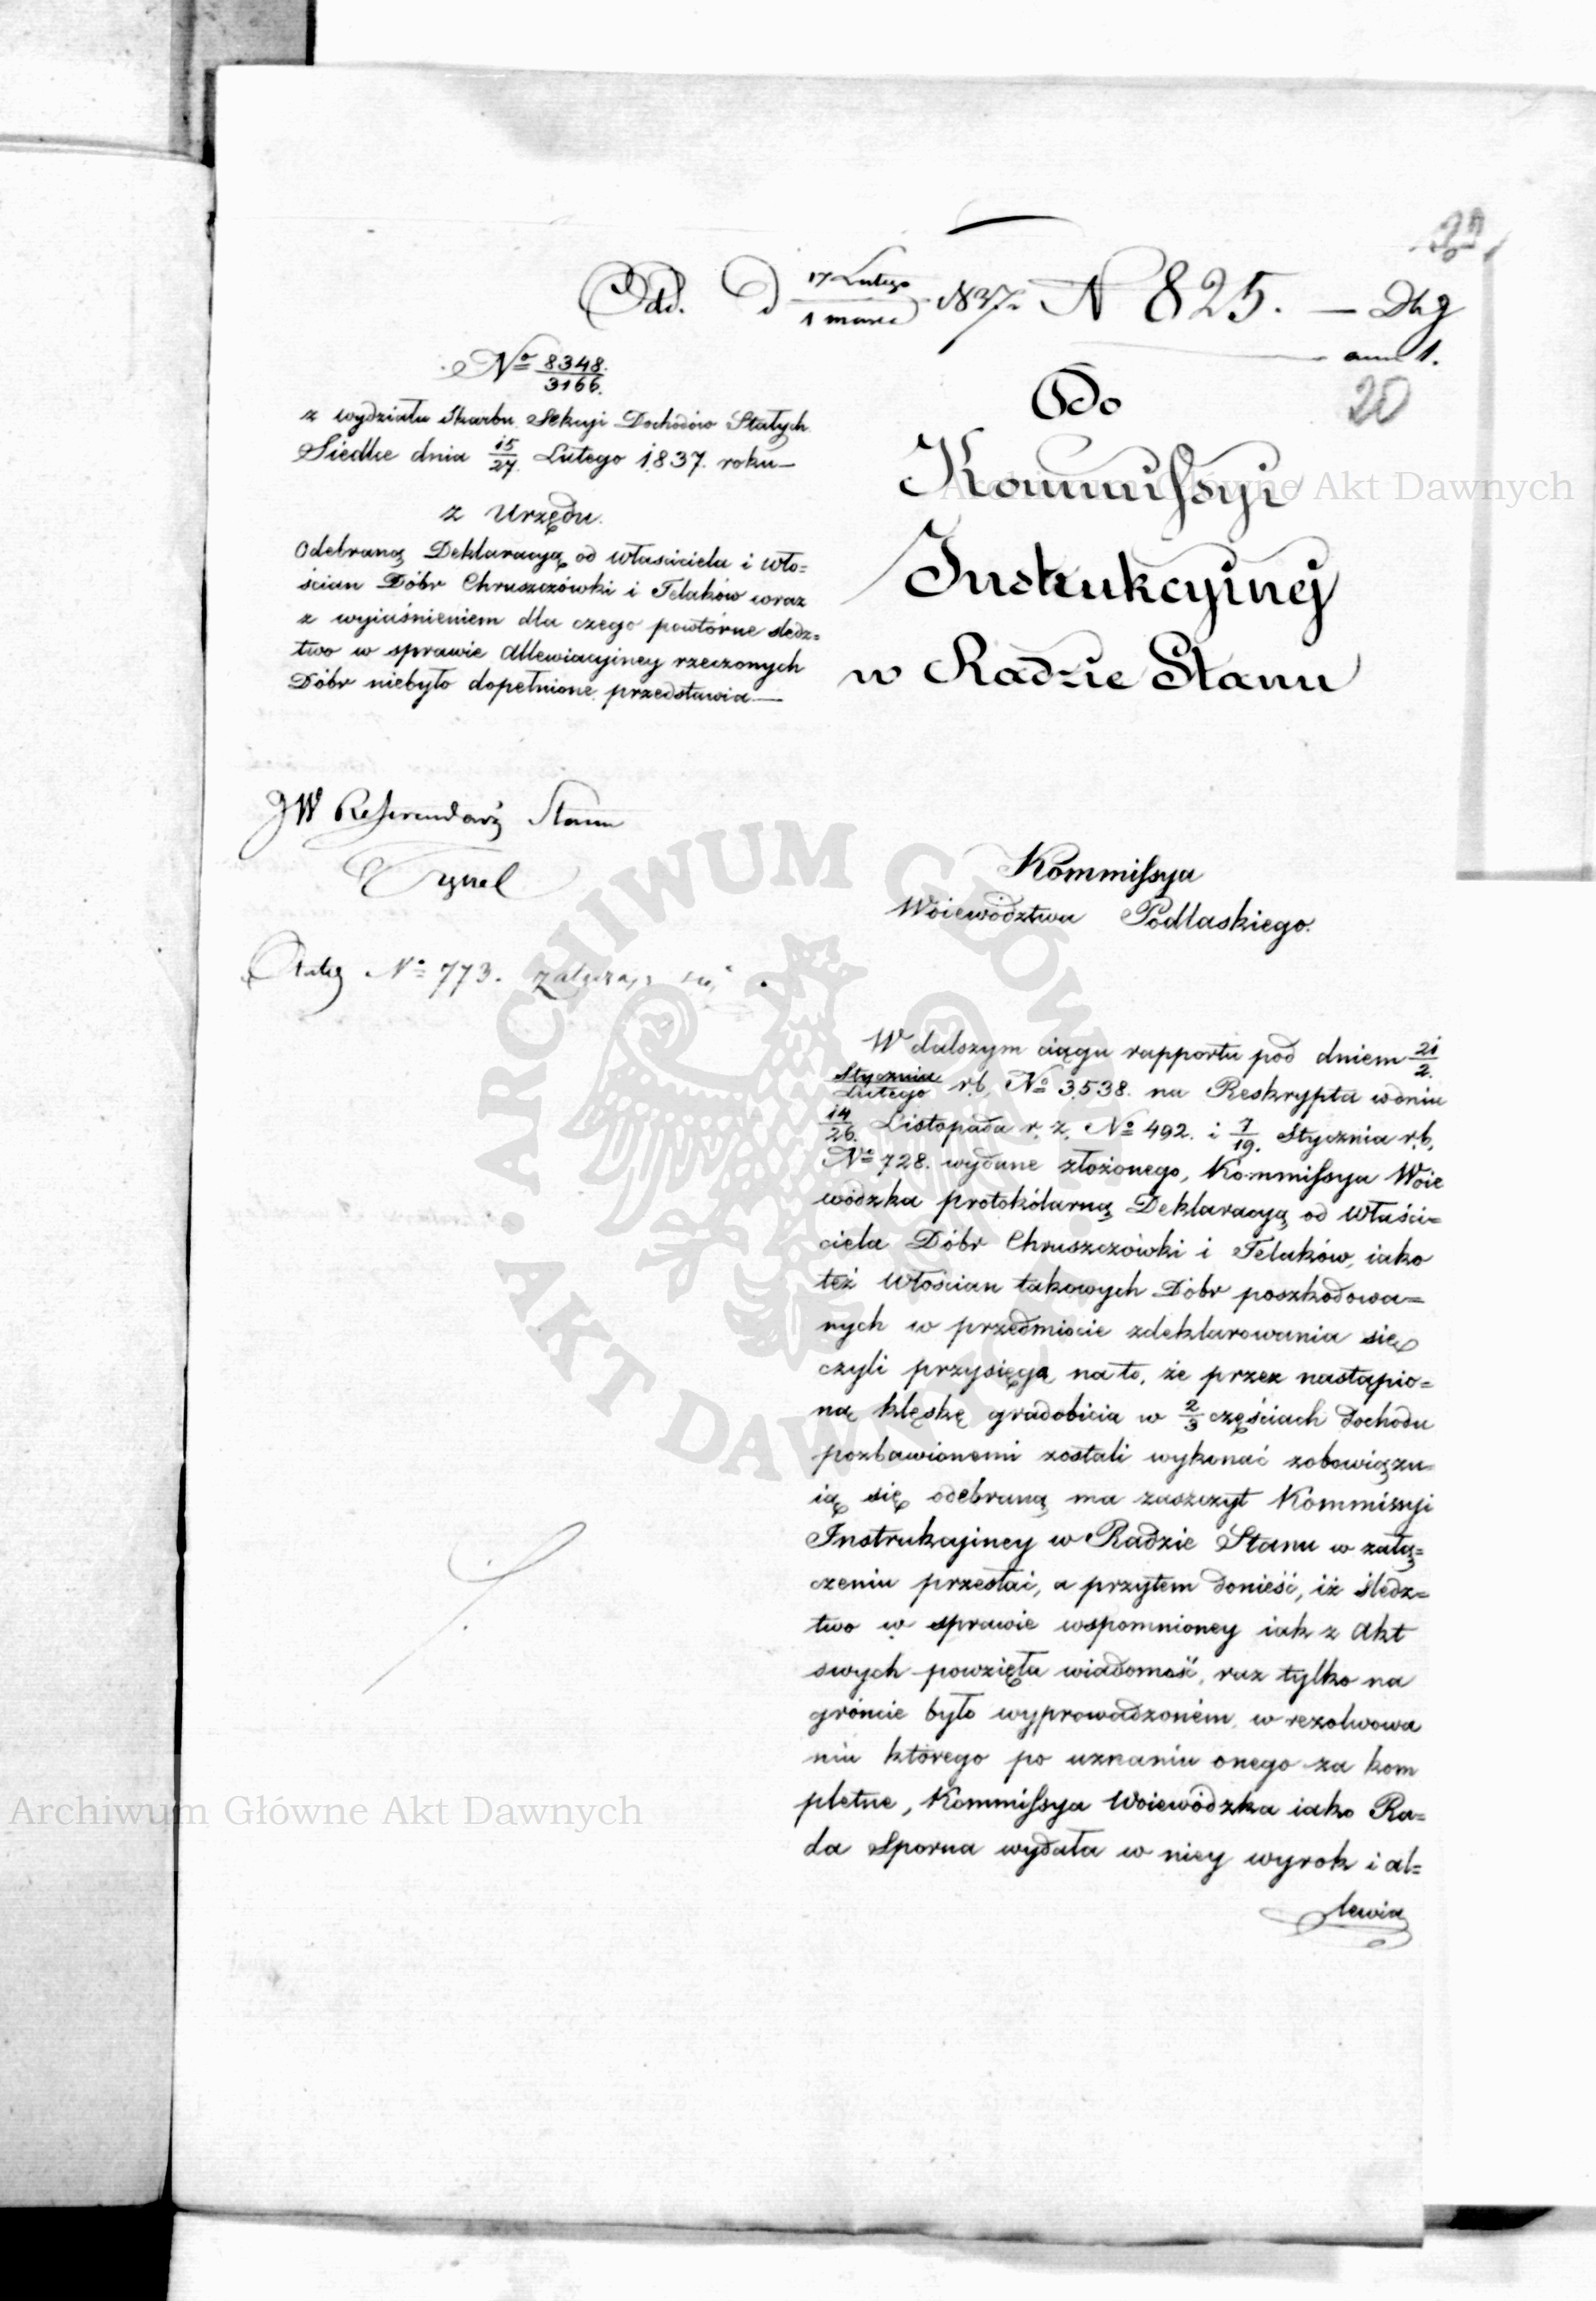 Odd. D 17 Lutego / 1 marca 1837. N 825. — Dhg
ann 1.
20
No 8348. / 3166.
z wydziału Skarbu Sekcyi Dochodów Stałych
Siedlce dnia 15/27. Lutego 1837. roku—
z Urzędu.
Odebraną Deklaracyą od właściciela i wło=
ścian Dóbr Chruszczówki i Telaków wraz
z wyiaśnieniem dla czego powtórne sledz=
two w sprawie Allewiacyiney rzeczonych
Dóbr niebyło dopełnione, przedstawia—
JW Referendarz Stanu
Tymel
Akta No 773. załączaią się.
Do
Kommissyi
Instrukcyinéj
w Radzie Stanu
Kommissya
Woiewództwa Podlaskiego.
W dalszym ciągu rapportu pod dniem 21/2.
Stycznia/Lutego r.b. No 3,538. na Reskrypta wdniu
14/26. Listopada r. z. No 492. i 7/19. Stycznia r.b.
No 728. wydane złożonego, Kommissya Woie
wódzka protokólarną Deklaracyą od Właści=
ciela Dóbr Chruszczówki i Telaków, iako
też Włościan takowych Dóbr poszkodowa=
nych w przedmiocie zdeklarowania się
czyli przysięgę na to, że przez nastąpio=
ną klęskę gradobicia w 2/3 częściach dochodu
pozbawionemi zostali wykonać zobowiązu=
ią się odebraną ma zaszczyt Kommissyi
Instrukcyiney w Radzie Stanu w załą=
czeniu przesłać, a przytem donieść, iż śledz=
two w sprawie wspomnioney iak z Akt
swych powzięła wiadomość, raz tylko na
gróncie było wyprowadzoném, w rezolwowa
niu którego po uznaniu onego za kom
pletne, Kommissya Woiewódzka iako Ra=
da Sporna wydała w niey wyrok i al=
lewia
Archiwum Główne Akt Dawnych
Archiwum Główne Akt Dawnych
ARCHIWUM GŁÓWNE AKT DAWNYCH